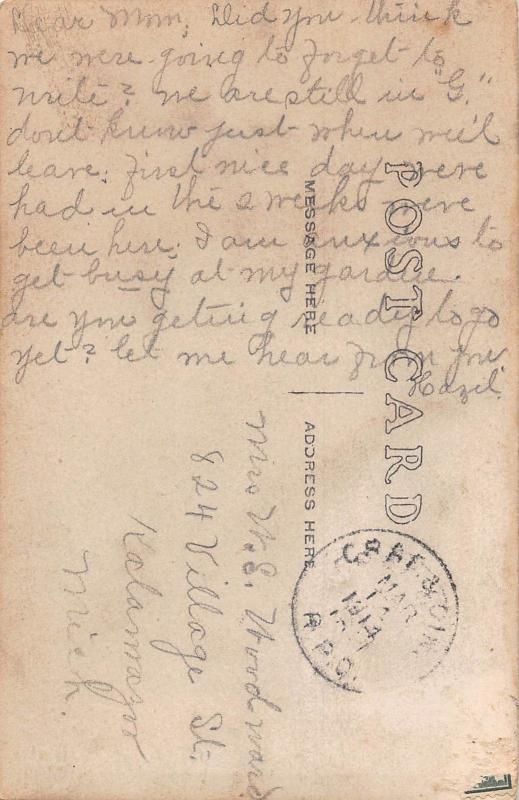 Dear Mom, Did you think
we were going to forget to
write? we are still in "G."
dont know just when we'l
leave. first nice day were
had in the 2 weeks were
been here. I am anxious to
get busy at my garden.
are you geting ready to go
yet? let me hear from you
Hazel.
POST CARD
MESSAGE HERE
ADDRESS HERE
Mrs W. E. Woodward
824 Village St.
Kalamazo
Mich.
MAR
1914
R.P.O.